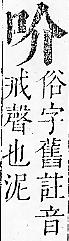 吤
俗字舊註音
戒聲也泥